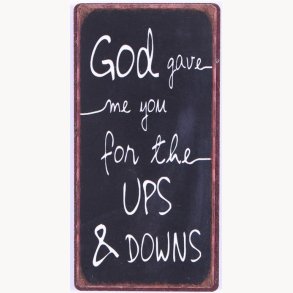 God gave
me you
for the
UPS
& DOWNS